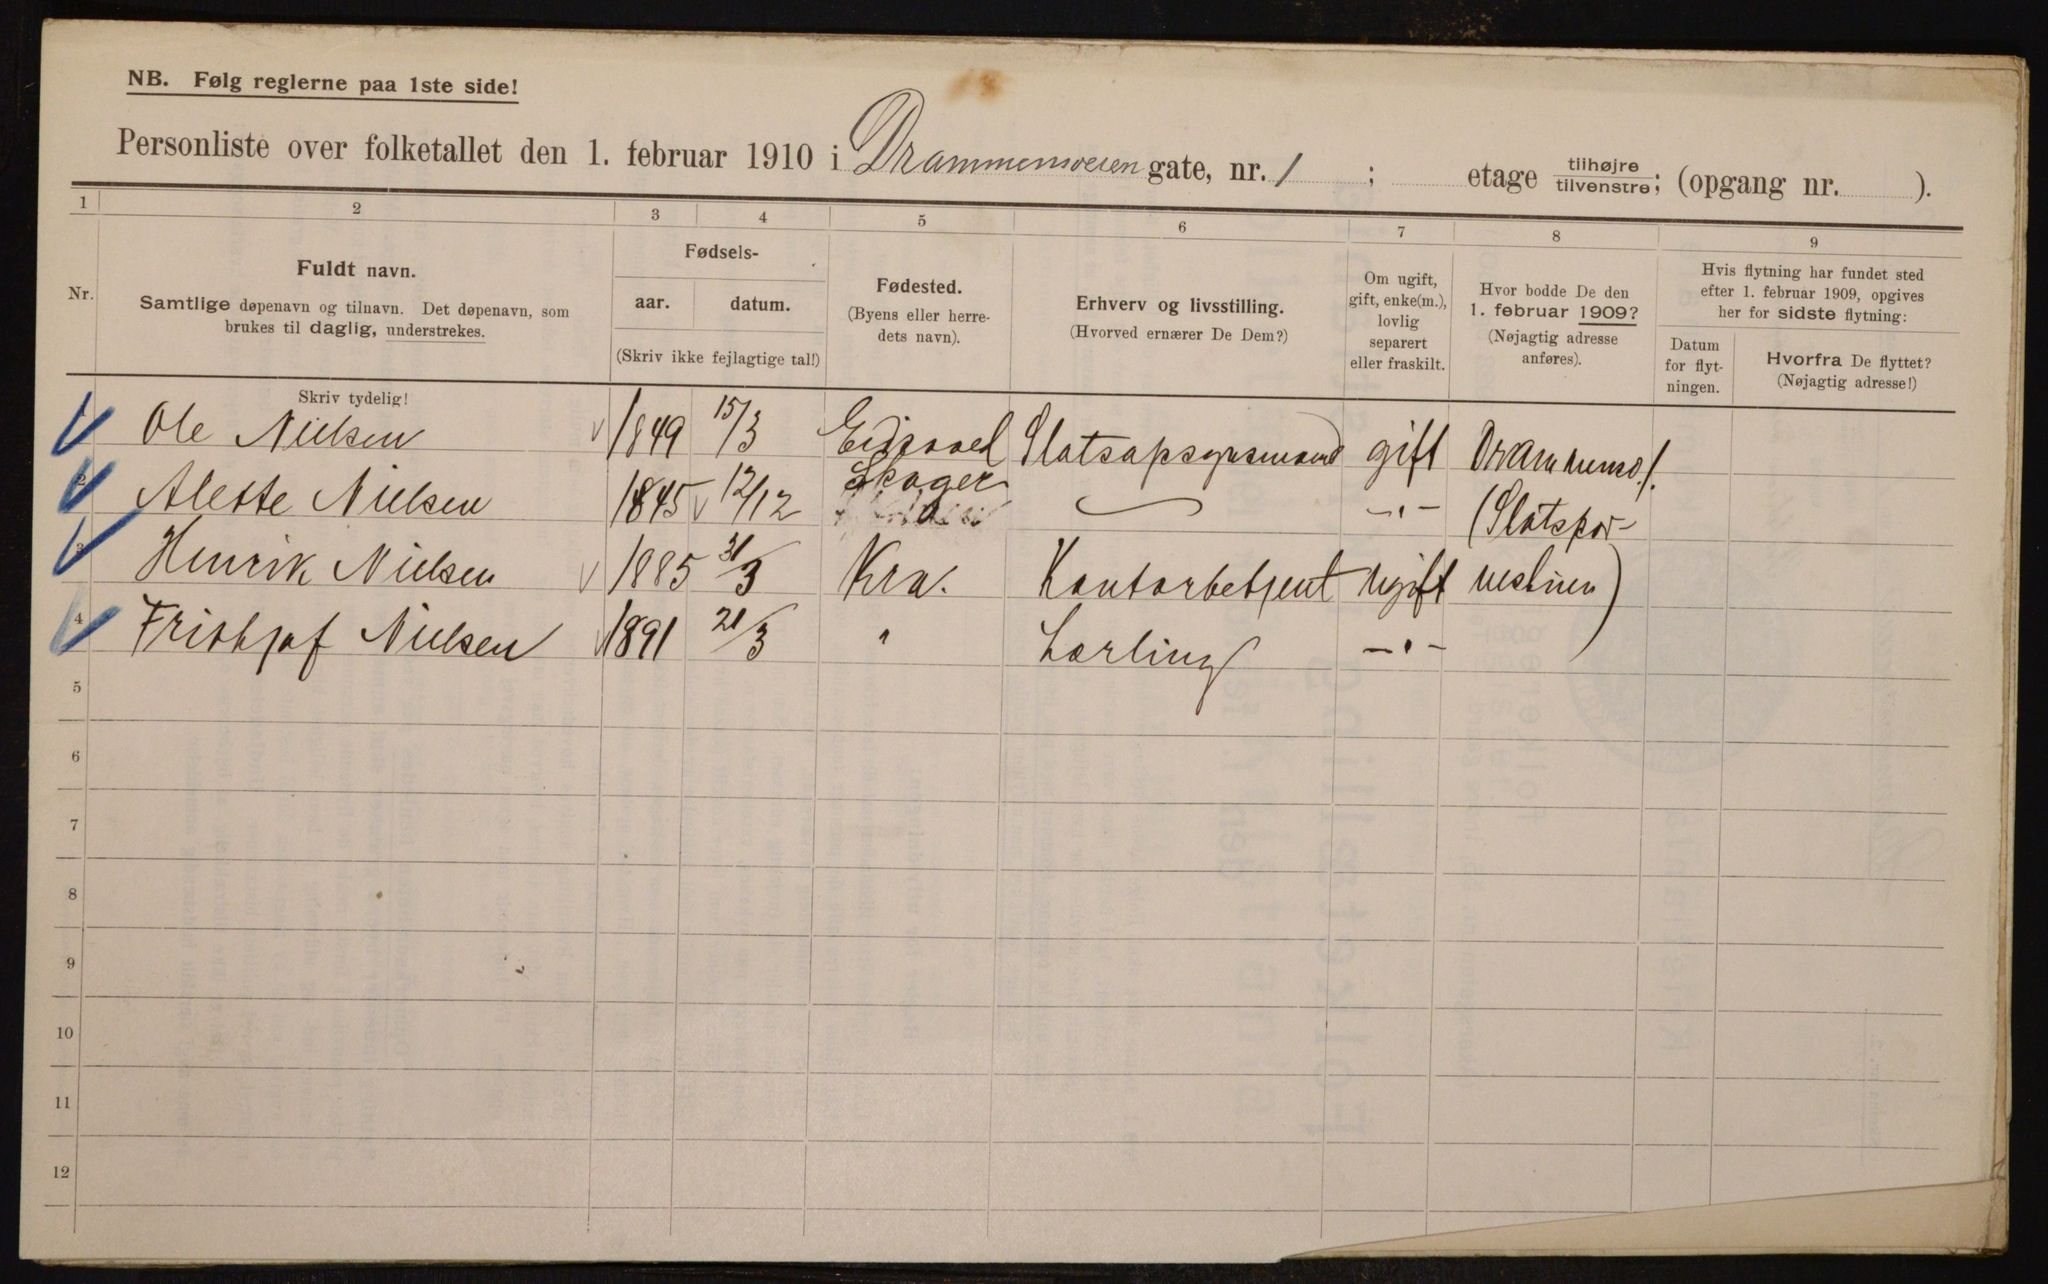 NB. Følg reglerne paa 1ste side!
Personliste over folketallet den 1. februar 1910 i Drammensveien gate, nr. 1 ; etage tilhøjre/tilvenstre; (opgang nr. ).
1 2 3 4 5 6 7 8 9
Nr.
Fuldt navn.
Samtlige døpenavn og tilnavn. Det døpenavn, som
brukes til daglig, understrekes.
Skriv tydelig!
Fødsels-
aar. datum.
(Skriv ikke fejlagtige tal!)
Fødested.
(Byens eller herre-
dets navn).
Erhverv og livsstilling.
(Hvorved ernærer De Dem?)
Om ugift,
gift, enke(m.),
lovlig
separert
eller fraskilt.
Hvor bodde De den
1. februar 1909?
(Nøjagtig adresse
anføres).
Hvis flytning har fundet sted
efter 1. februar 1909, opgives
her for sidste flytning:
Datum
for flyt-
ningen.
Hvorfra De flyttet?
(Nøjagtig adresse!)
1 Ole Nielsen 1849 15/3 Eidsvoel Slotsopsynsmand gift Drammensv. 1.
2 Alette Nielsen 1845 12/12 Skoger -"- (Slotsfor-
3 Henrik Nielsen 1885 31/3 Kra. Kontorbetjent ugift
4 Frithjof Nielsen 1891 21/3 " Lærling -"-
5
6
7
8
9
10
11
12